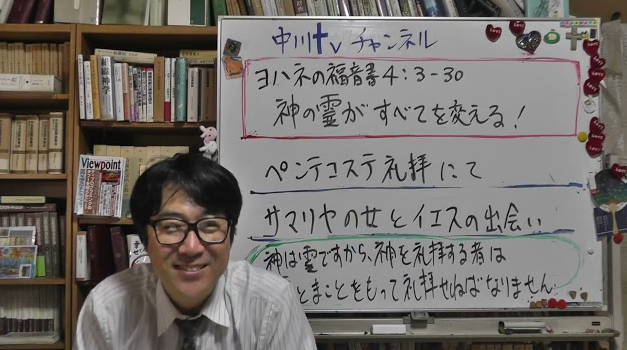 中川tvチャンネル
ヨハネの福音書4:3-30
神の霊がすべてを変える!
ペンテコステ礼拝にて
サマリヤの女とイエスの出会い
神は霊ですから、神を礼拝する者は
とまことをもって礼拝せねばなりません
Viewpoint